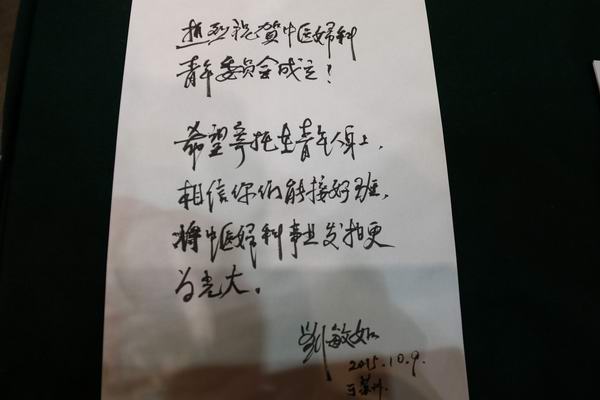 热烈祝贺中医婦科
青年委员会成立!
希望寄托在青年人身上,
相信你们能接好班,
将中医婦科事业发扬更
为光大。
劉敏如
2015.10.9.
于苏州